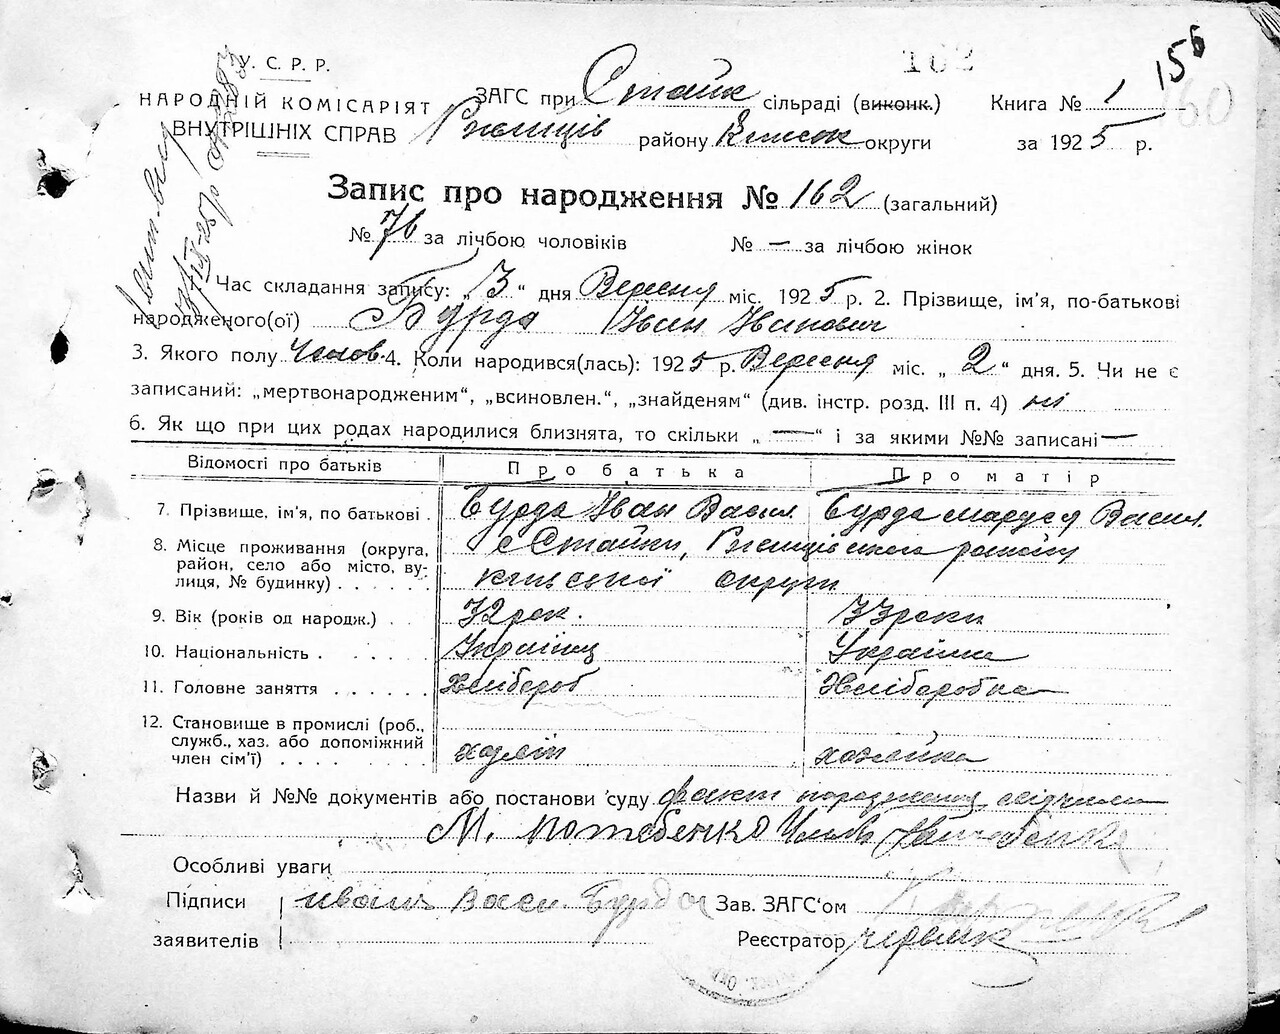 У. С. Р. Р.
НАРОДНІЙ КОМІСАРІЯТ
ВНУТРІШНІХ СПРАВ
162
156
60
ЗАГС при Стайк сільраді (виконк.) Книга № 1
Ржищів району Київськ округи за 1925 р.
Запис про народження № 162 (загальний)
№ 76 за лічбою чоловіків № — за лічбою жінок
Час складання запису: „3“ дня Вересня міс. 1925 р. 2. Прізвище, ім'я, по-батькові
народженого(ої) Бурда Іван Іванович
3. Якого полу Чолов. 4. Коли народився(лась): 1925 р. Вересня міс. „2“ дня. 5. Чи не є
записаний: „мертвонародженим“, „всиновлен.“, „знайденям“ (див. інстр. розд. III п. 4) ні
6. Як що при цих родах народилися близнята, то скільки „—“ і за якими №№ записані —
Відомості про батьків Про батька Про матір
7. Прізвище, ім'я, по батькові . Бурда Іван Васил. Бурда Маруся Васил.
8. Місце проживання (округа, с Стайки, Ржищівського району
район, село або місто, ву-
лиця, № будинку) . . . . . . київської округи
9. Вік (років од народж.) . . . 32 рок. 33 роки
10. Національність . . . . . . Українец Українка
11. Головне заняття . . . . . . Хлібороб Хліборобка
12. Становище в промислі (роб.,
служб., хаз. або допоміжний
член сім'ї) . . . . . хазяін хозяйка
Назви й №№ документів або постанови суду факт народження свідчили
М. Потебенко
Особливі уваги
Підписи Иванъ Васи. Бурда Зав. ЗАГС'ом
заявителів Реєстратор